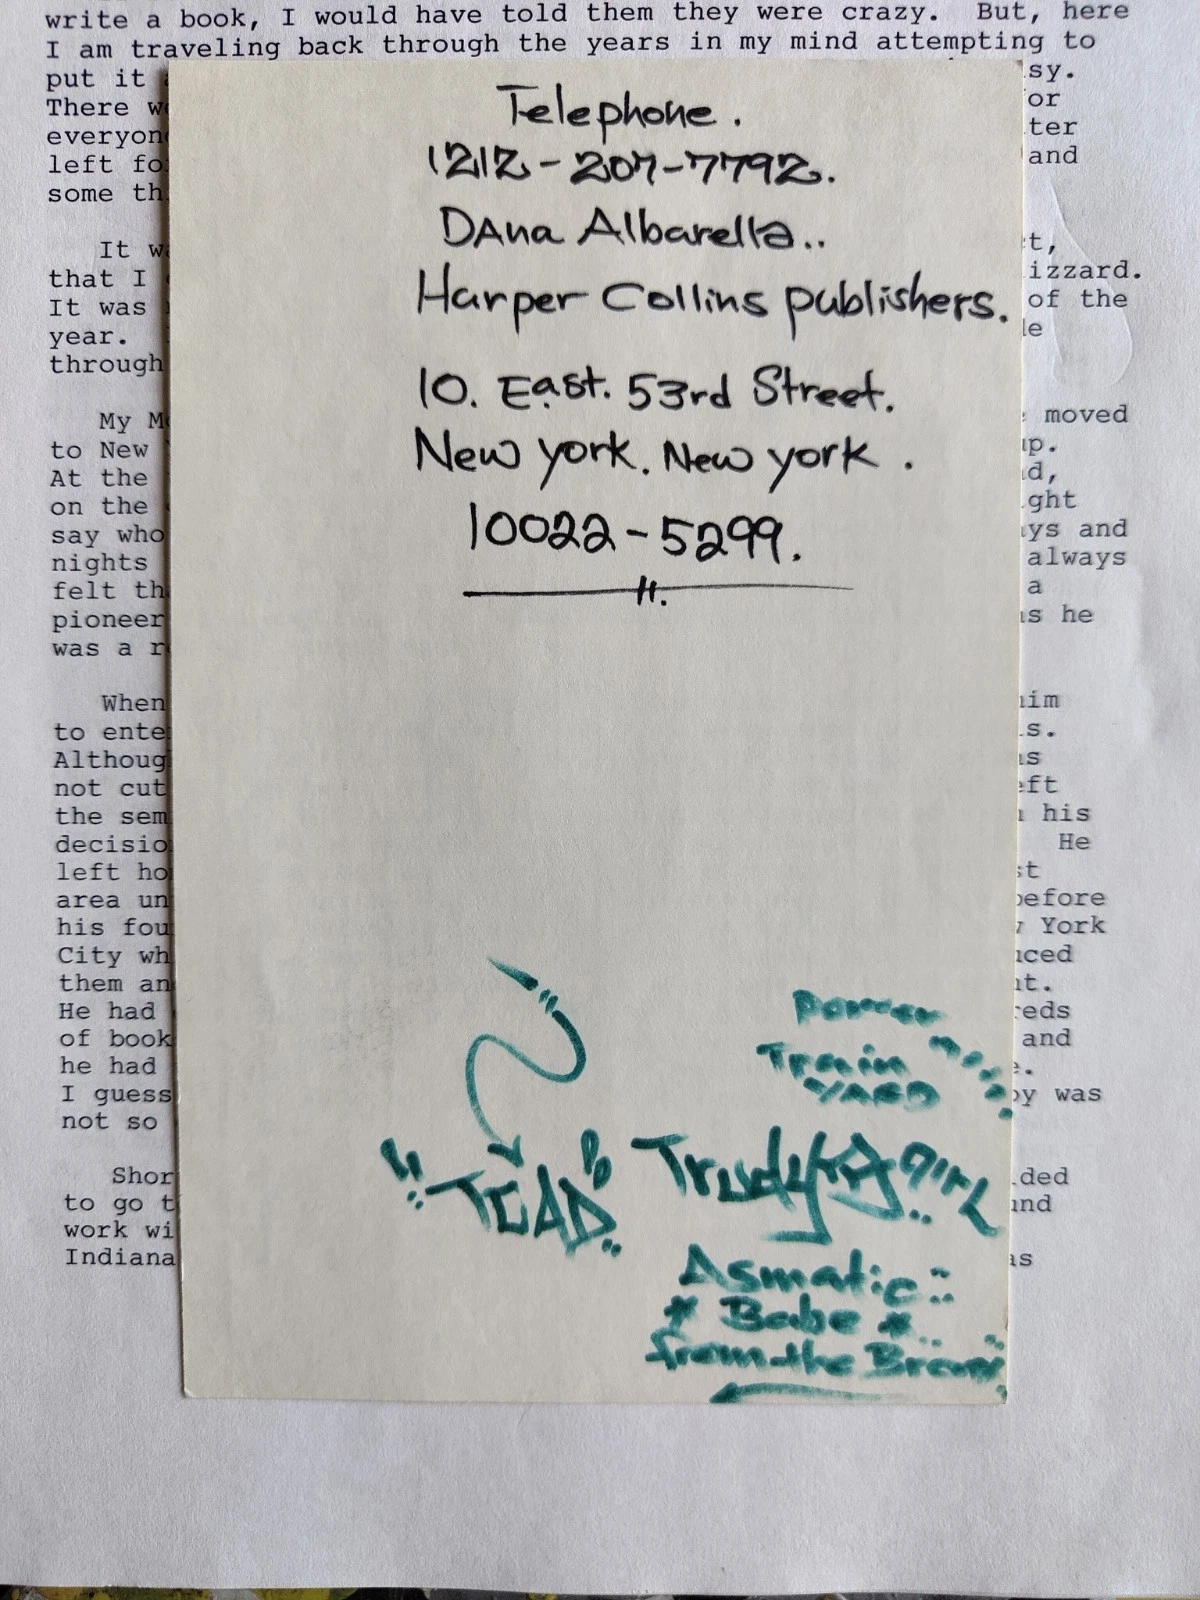 write a book, I would have told them they were crazy. But, here
I am traveling back through the years in my mind attempting to
put it
sy.
There
or
everyon
ter
left fo
and
some th
It
t,
that I
izzard.
It was
of the
year.
through
My
moved
to New
up.
At the
d,
on the
ght
say who
ys and
nights
always
felt th
a
pioneer
s he
was a
When
im
to ente
s.
Althoug
s
not cut
eft
the sem
his
decisio
He
left ho
st
area un
before
his fou
York
City wh
ced
them an
t.
He had
reds
of book
and
he had
e.
I guess
y was
not so
Shor
ded
to go t
und
work wi
Indiana
as
Telephone.
1212-207-7792.
DAna Albarella..
Harper Collins publishers.
10. East. 53rd Street.
New york. New york.
10022-5299.
H.
Train
YARD
"TOAD"
Trudy girl
Asmatic
* Babe *
from the Bronx